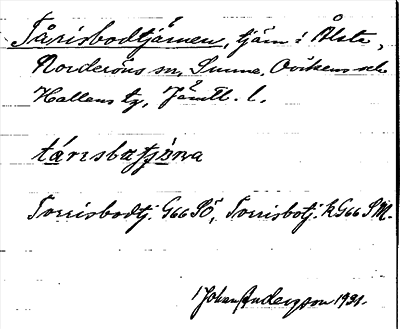 Tårisbodtjärnen, tjärn i Ålsta,
Norderöns sn, Sunne, Ovikens och
Hallens tg, Jämtl. l.
tárısbɷtjɛ̀ṇa
Torrisbodtj. G66 SÖ, Torrisbotj. k G66 SM.
Johan Andersson 1931.